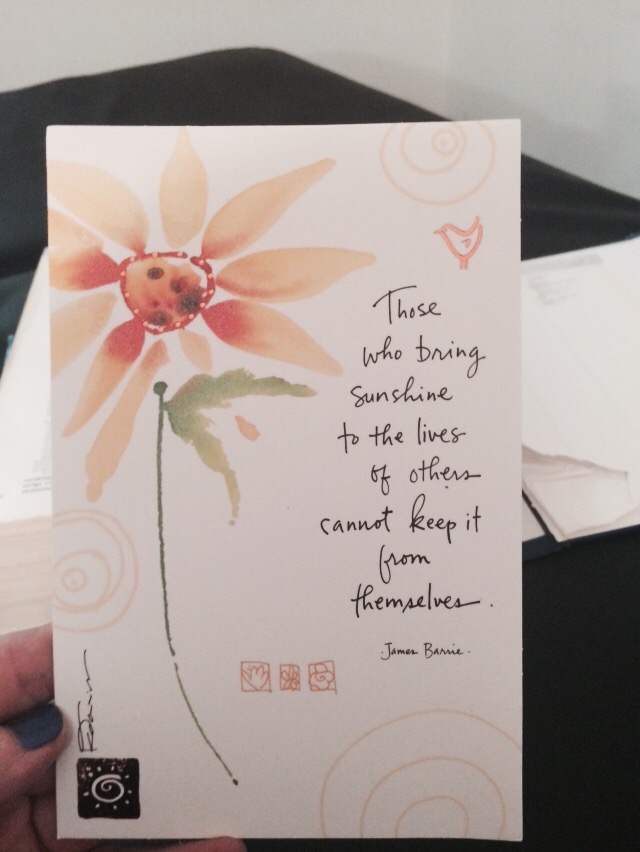 Those
who bring
sunshine
to the lives
of others
cannot keep it
from
themselves.
· James Barrie ·